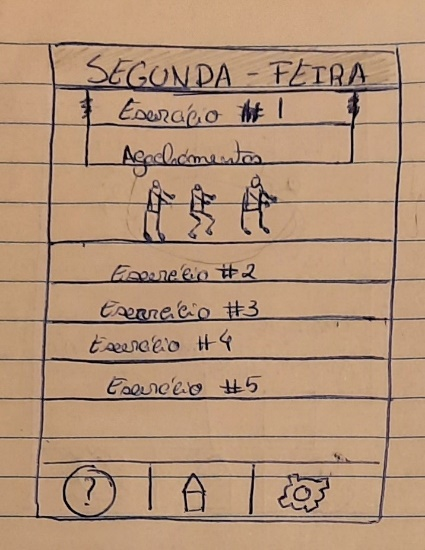 SEGUNDA - FEIRA
Exercício # 1
Agachamentos
Exercício #2
Exercício #3
Exercício #4
Exercício #5
?